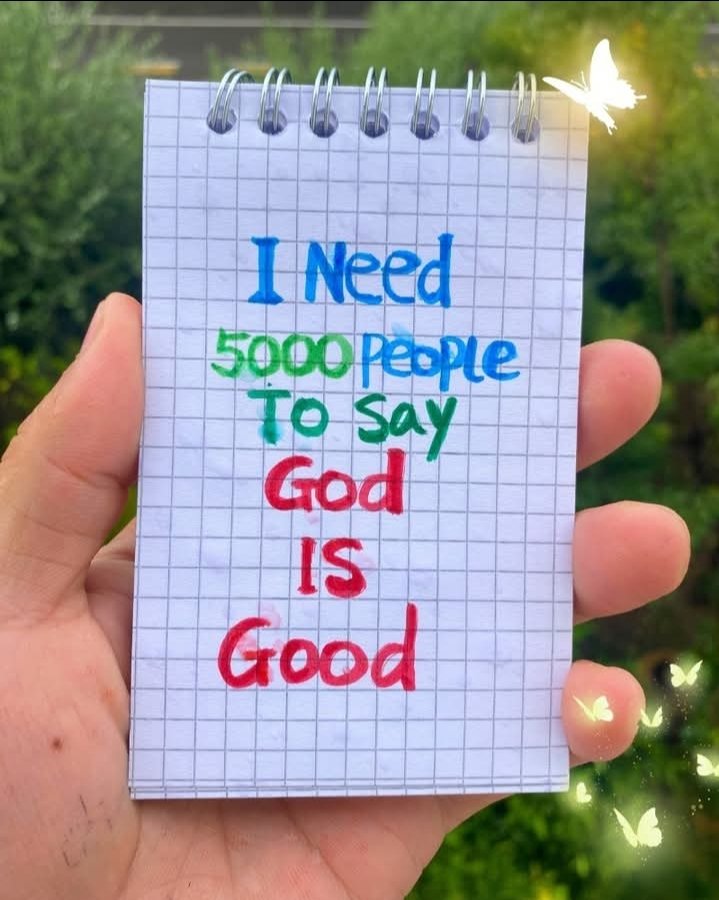 I Need
5000 People
To Say
God
IS
Good